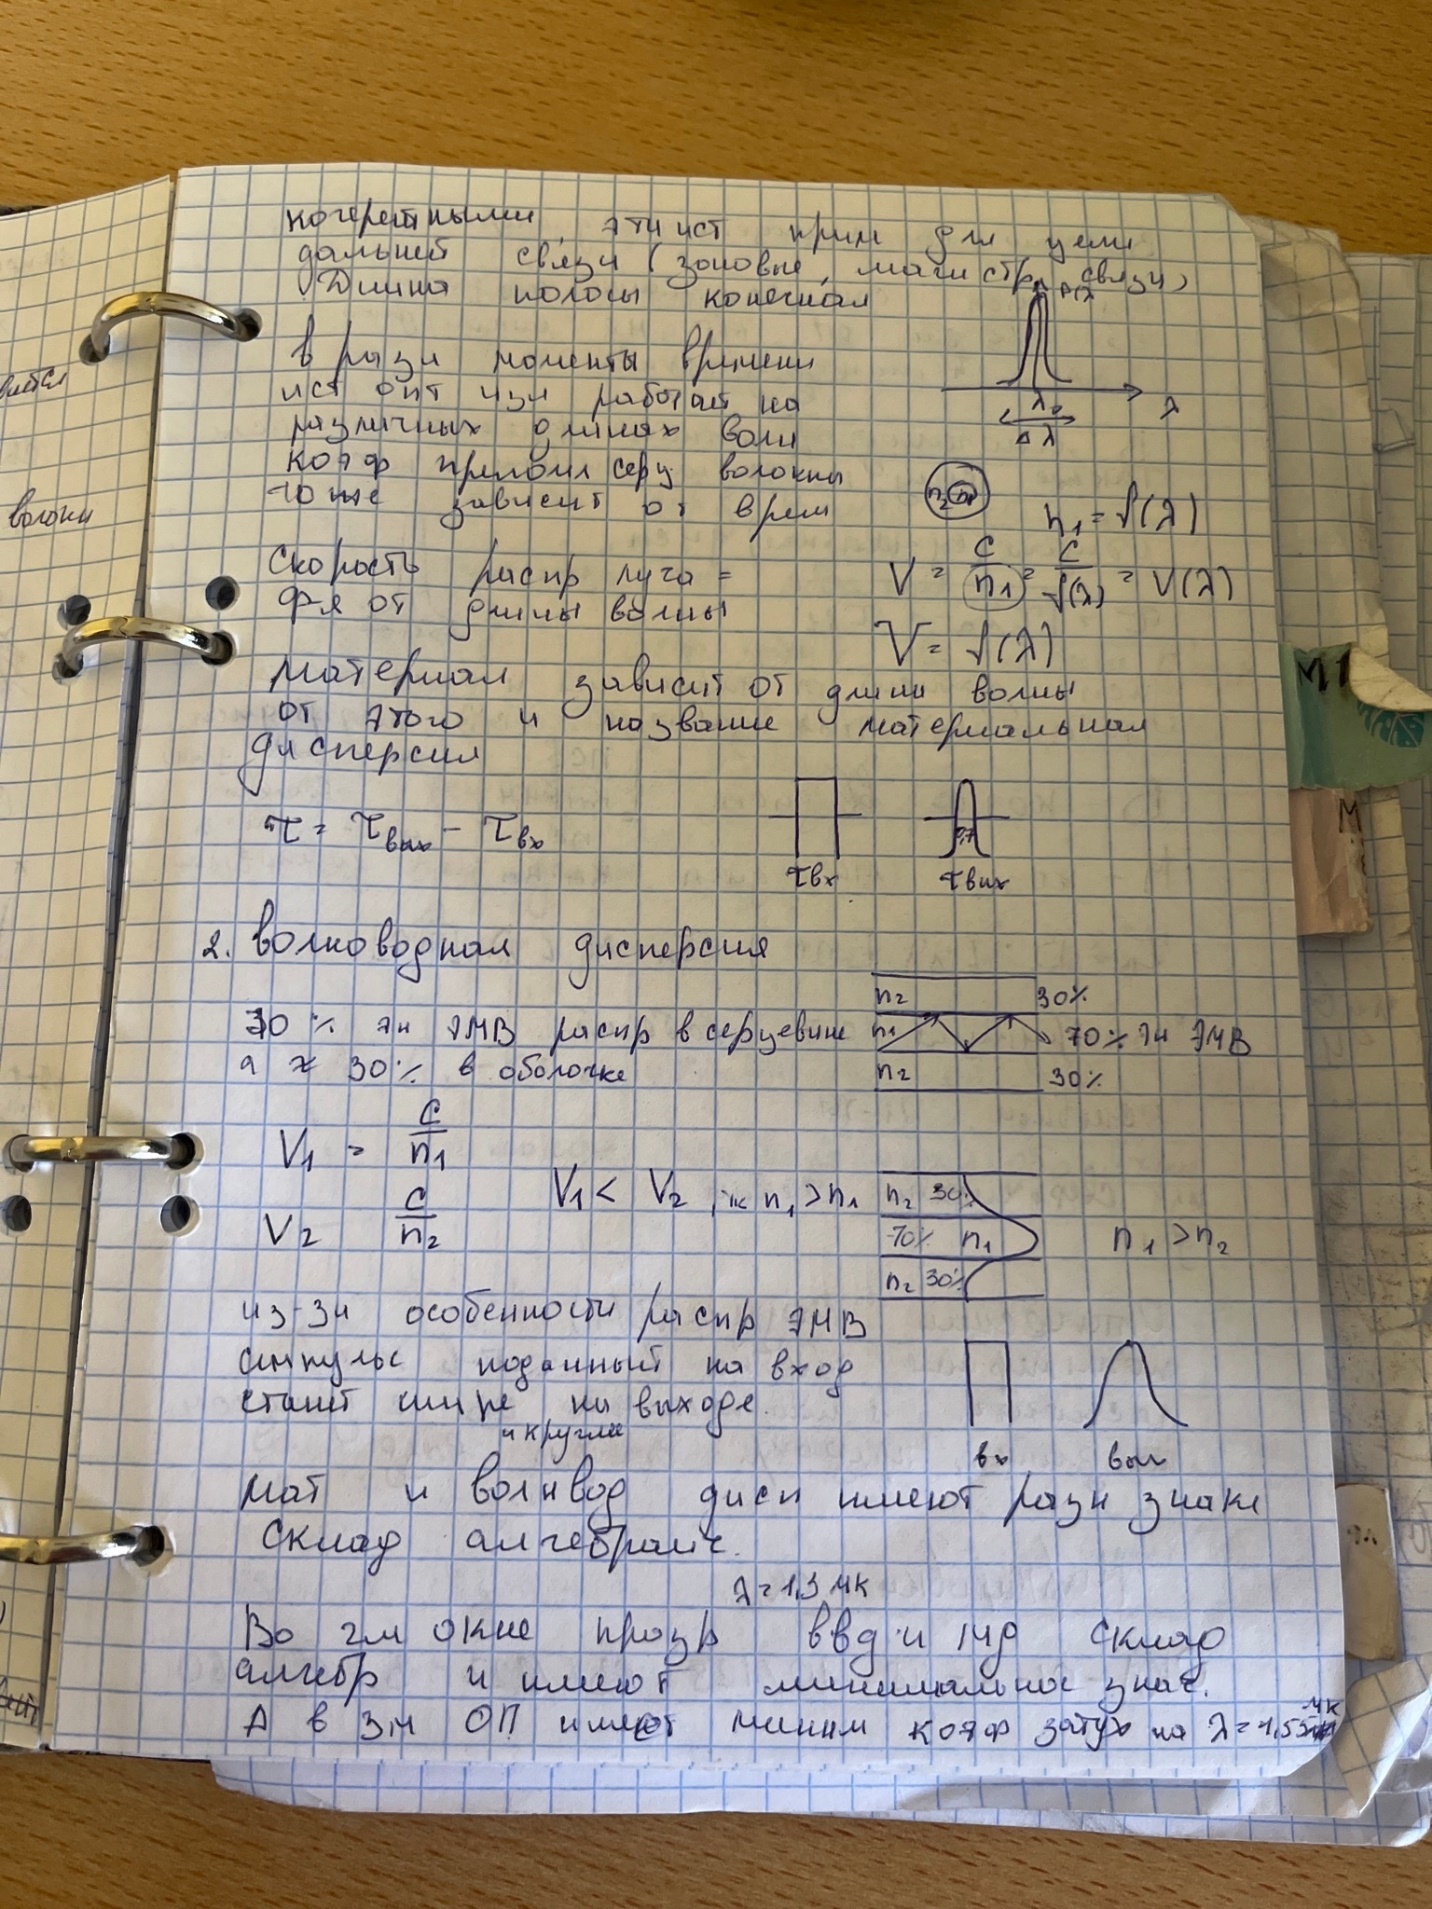 когерентными, эти ист прим для цели
дальней связи (зоновые, магистр, связи)
Длина полосы конечная
P(λ)
λ₀
λ
Δλ
в разн моменты времени
ист опт изл работает на
различных длинах волн
коэф преломл серц волокны
тоже зависит от врем
n₂ n₁
n₁ = f(λ)
скорость распр луча =
ф-я от длины волны
V = c/n₁ = c/f(λ) = V(λ)
V = f(λ)
материал зависит от длин волны
от этого и название материальная
дисперсия
τ = τвых - τвх
τвх
0,7
τвых
2. волноводная дисперсия
70% эн ЭМВ распр в серцевине
а ≈ 30% в оболочке
n₂ 30%
n₁ 70% эн ЭМВ
n₂ 30%
V₁ = c/n₁
V₂ c/n₂
V₁ < V₂, тк n₁ > n₁
n₂ 30%
70% n₁
n₂ 30%
n₁ > n₂
из-зи особенности распр ЭМВ
импульс поданный на вход
станет шире на выходе.
и круглее
вх
вых
мат и волнвод дисп имеют разн знаки
склад алгебраич.
λ = 1,3 мк
Во 2м окне прозр ввд и мд склад
алгебр и имеют минимальное знач.
А в 3м ОП имеют миним коэф затух на λ = 1,55 мк
вается
волокн
М1
М